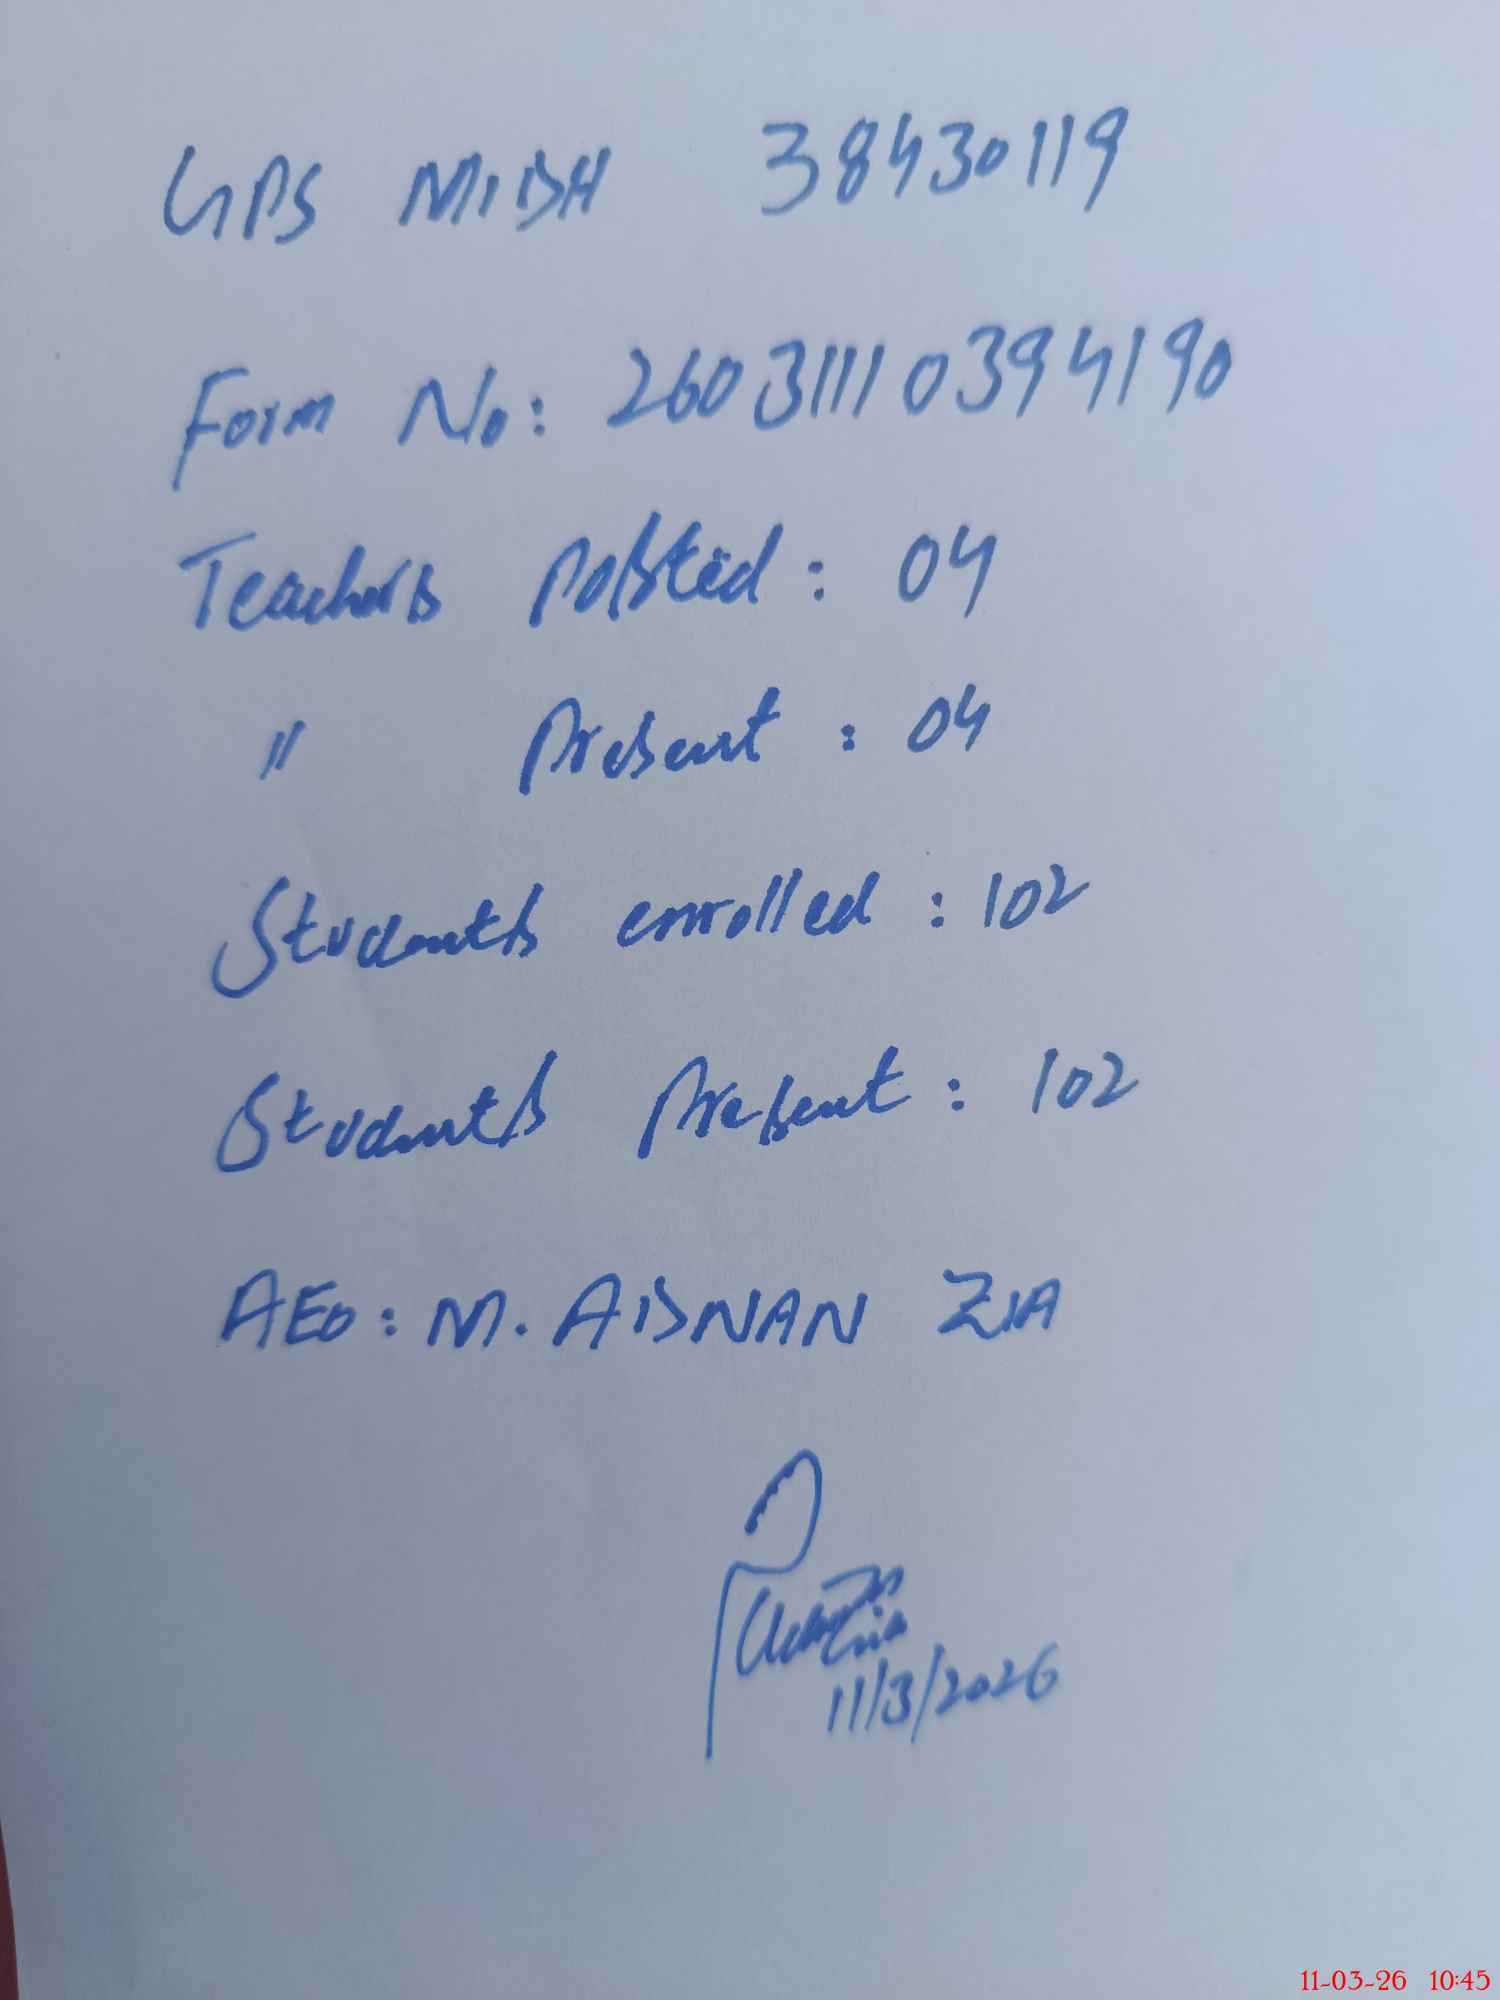 GPS MIDH 38430119
Form No: 26031110394190
Teachers posted: 04
" Present: 04
Students enrolled: 102
Students present: 102
AEO: M. ADNAN ZIA
11/3/2026
11-03-26 10:45